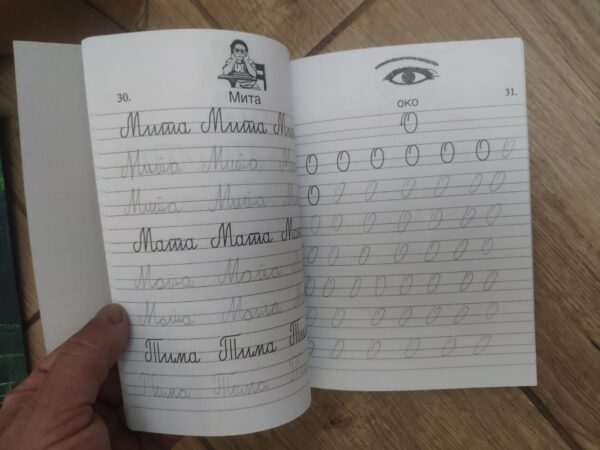 30.
Мита
Мита Мита Ми
Мита Мита М
Мита Мита М
Мата Мата Ма
Мата Мата М
Мата Мата М
Тима Тима Ти
Тима Тима Т
31.
око
О
О О О О О О О
О О О О О О О О
О О О О О О О
О О О О О О О
О О О О О О О О
О О О О О О О
О О О О О О О